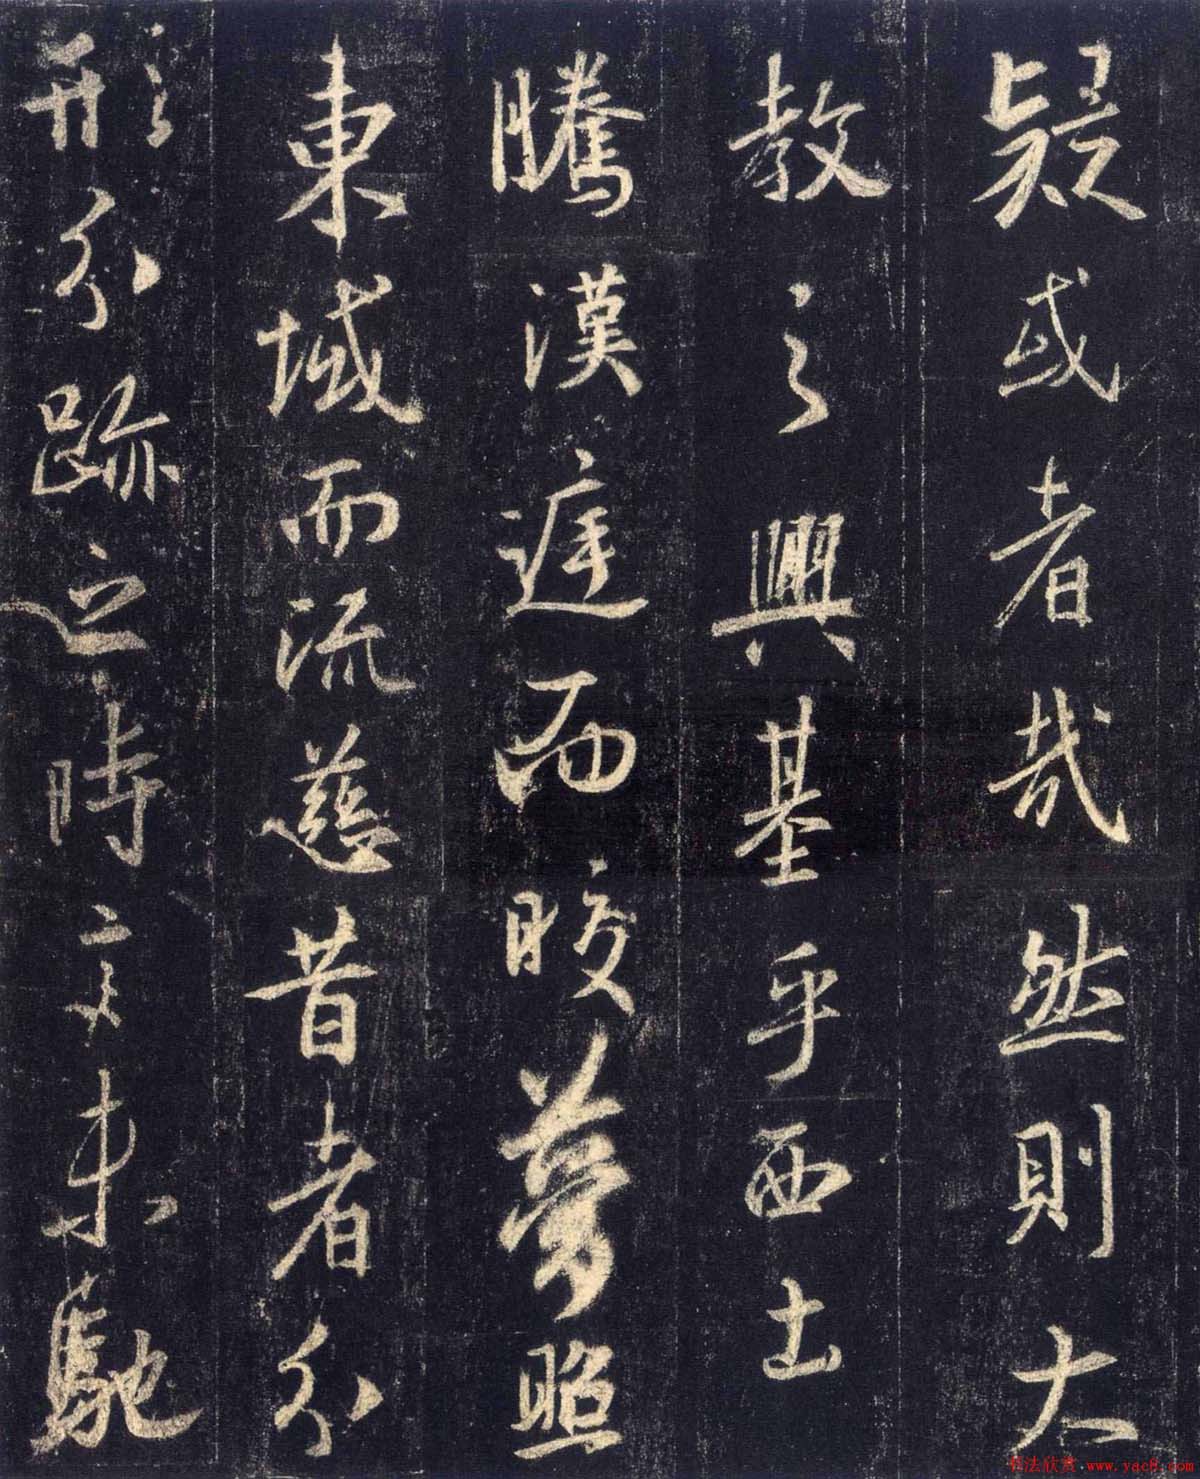 疑或者哉然則大
教之興基乎西土
騰漢庭而皎夢照
東域而流慈昔者分
形分跡之時言未馳
书法欣赏 www.yac8.com